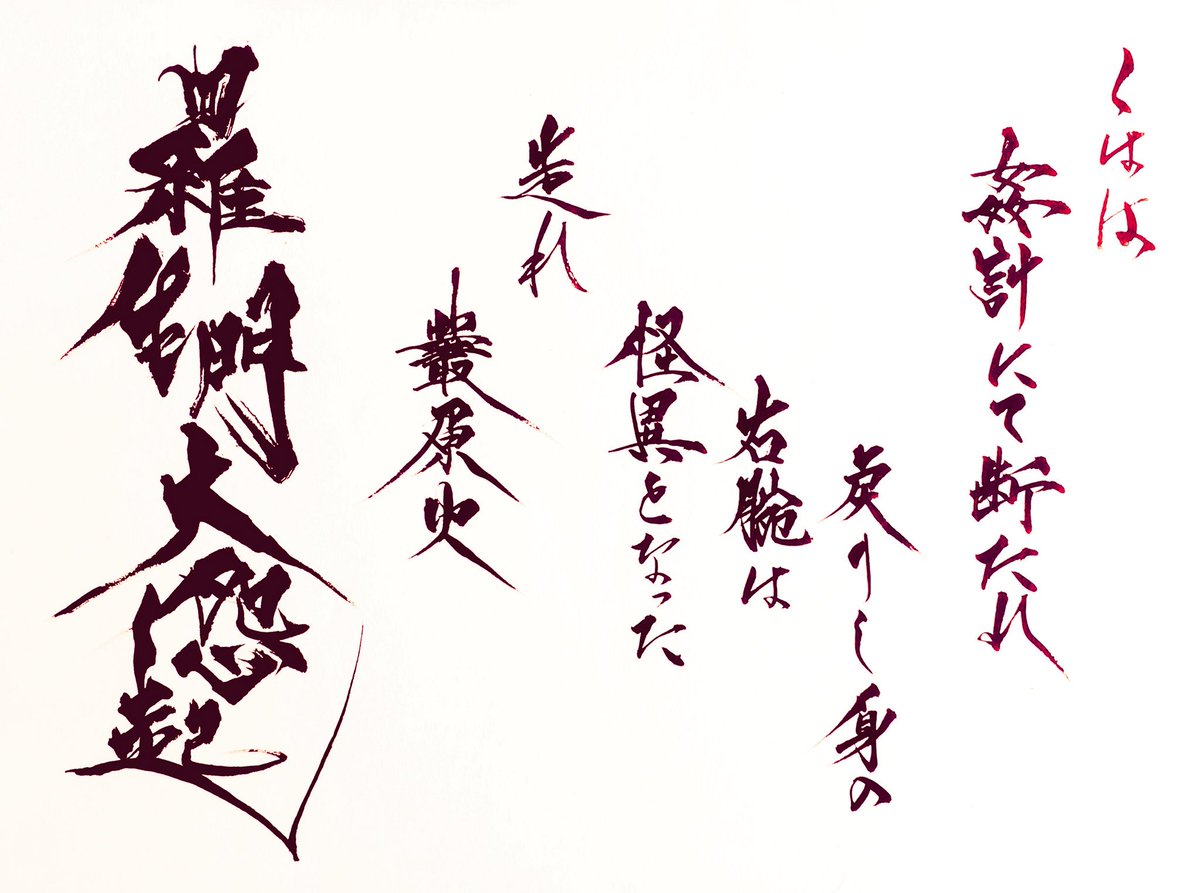 くはは
姦計にて断たれ
戻りし身の
右腕は
怪異となった
走れ
叢原火
羅生門大怨起